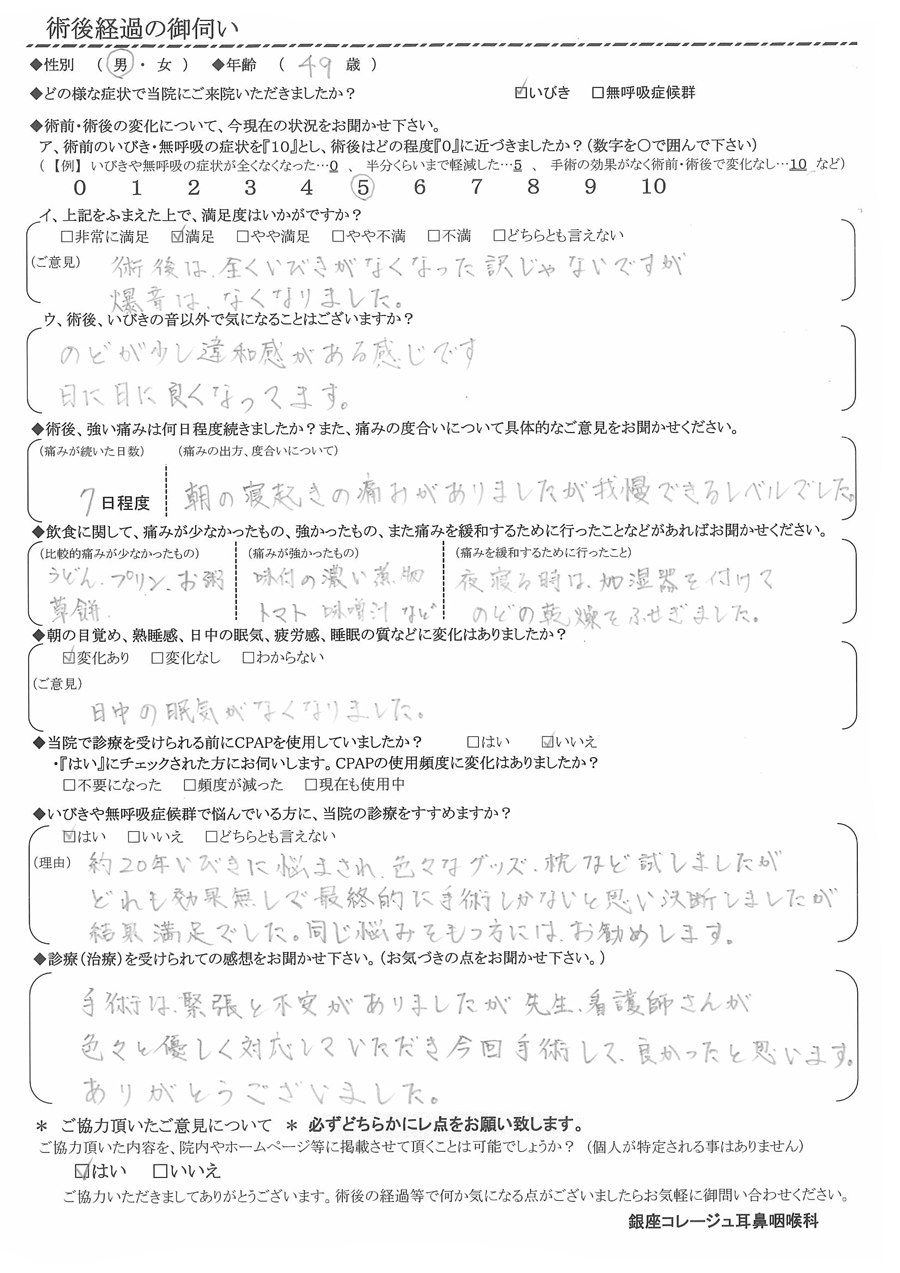 術後経過の御伺い
◆性別 （ 男 ・ 女 ） ◆年齢 （ 49 歳 ）
◆どの様な症状で当院にご来院いただきましたか？ ☑いびき □無呼吸症候群
◆術前・術後の変化について、今現在の状況をお聞かせ下さい。
ア、術前のいびき・無呼吸の症状を『10』とし、術後はどの程度『0』に近づきましたか？（数字を〇で囲んで下さい）
（【例】 いびきや無呼吸の症状が全くなくなった…0 、 半分くらいまで軽減した…5 、 手術の効果がなく術前・術後で変化なし…10 など）
0 1 2 3 4 5 6 7 8 9 10
イ、上記をふまえた上で、満足度はいかがですか？
□非常に満足 ☑満足 □やや満足 □やや不満 □不満 □どちらとも言えない
（ご意見） 術後は、全くいびきがなくなった訳じゃないですが
爆音は、なくなりました。
ウ、術後、いびきの音以外で気になることはございますか？
のどが少し違和感がある感じです
日に日に良くなってます。
◆術後、強い痛みは何日程度続きましたか？また、痛みの度合いについて具体的なご意見をお聞かせください。
（痛みが続いた日数） （痛みの出方、度合いについて）
7 日程度 朝の寝起きの痛みがありましたが我慢できるレベルでした。
◆飲食に関して、痛みが少なかったもの、強かったもの、また痛みを緩和するために行ったことなどがあればお聞かせください。
（比較的痛みが少なかったもの） （痛みが強かったもの） （痛みを緩和するために行ったこと）
うどん、プリン、お粥 味付の濃い煮物 夜寝る時は、加湿器を付けて
草餅、 トマト 味噌汁 など のどの乾燥をふせぎました。
◆朝の目覚め、熟睡感、日中の眠気、疲労感、睡眠の質などに変化はありましたか？
☑変化あり □変化なし □わからない
（ご意見）
日中の眠気がなくなりました。
◆当院で診療を受けられる前にCPAPを使用していましたか？ □はい ☑いいえ
・『はい』にチェックされた方にお伺いします。CPAPの使用頻度に変化はありましたか？
□不要になった □頻度が減った □現在も使用中
◆いびきや無呼吸症候群で悩んでいる方に、当院の診療をすすめますか？
☑はい □いいえ □どちらとも言えない
（理由） 約20年いびきに悩まされ、色々なグッズ、枕など試しましたが
どれも効果無しで最終的に手術しかないと思い決断しましたが
結果満足でした。同じ悩みをもつ方には、お勧めします。
◆診療（治療）を受けられての感想をお聞かせ下さい。（お気づきの点をお聞かせ下さい。）
手術は、緊張と不安がありましたが先生、看護師さんが
色々と優しく対応していただき今回手術して、良かったと思います。
ありがとうございました。
＊ ご協力頂いたご意見について ＊ 必ずどちらかにレ点をお願い致します。
ご協力頂いた内容を、院内やホームページ等に掲載させて頂くことは可能でしょうか？ （個人が特定される事はありません）
☑はい □いいえ
ご協力いただきましてありがとうございます。術後の経過等で何か気になる点がございましたらお気軽に御問い合わせください。
銀座コレージュ耳鼻咽喉科